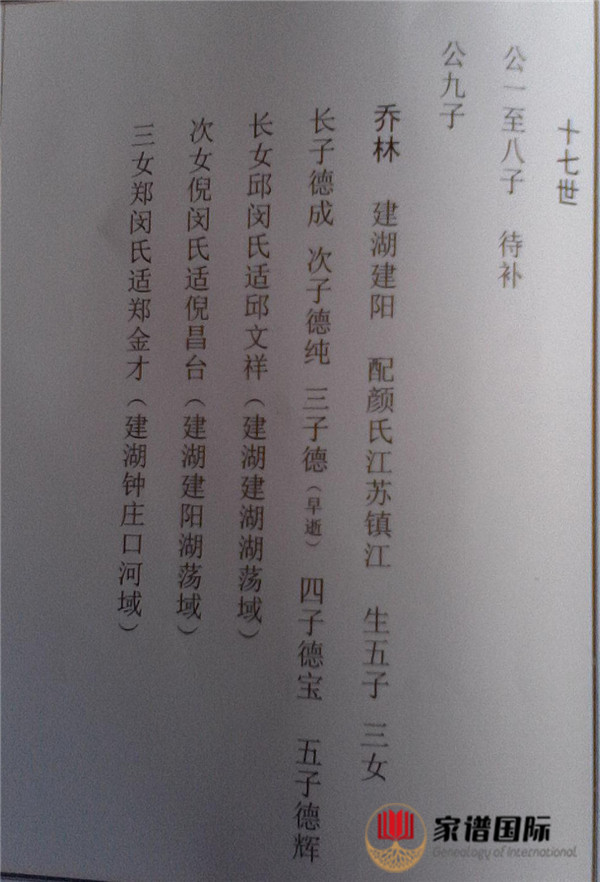 十七世
公一至八子 待补
公九子
乔林 建湖建阳 配颜氏江苏镇江 生五子 三女
长子德成 次子德纯 三子德（早逝） 四子德宝 五子德辉
长女邱闵氏适邱文祥（建湖建湖湖荡域）
次女倪闵氏适倪昌台（建湖建阳湖荡域）
三女郑闵氏适郑金才（建湖钟庄口河域）
家谱国际
Genealogy of International